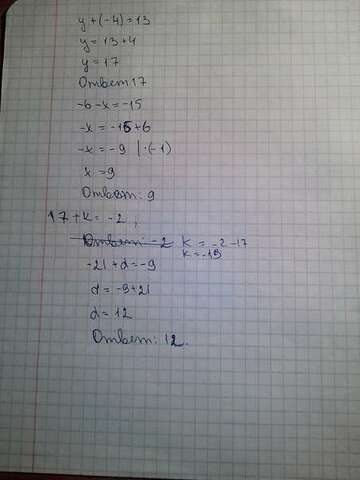 y + (-4) = 13
y = 13 + 4
y = 17
Ответ 17
-6 - x = -15
-x = -15 + 6
-x = -9 | ·(-1)
x = 9
Ответ: 9
17 + k = -2,
Ответ: -2 k = -2 - 17
k = -19
-21 + d = -9
d = -9 + 21
d = 12
Ответ: 12.